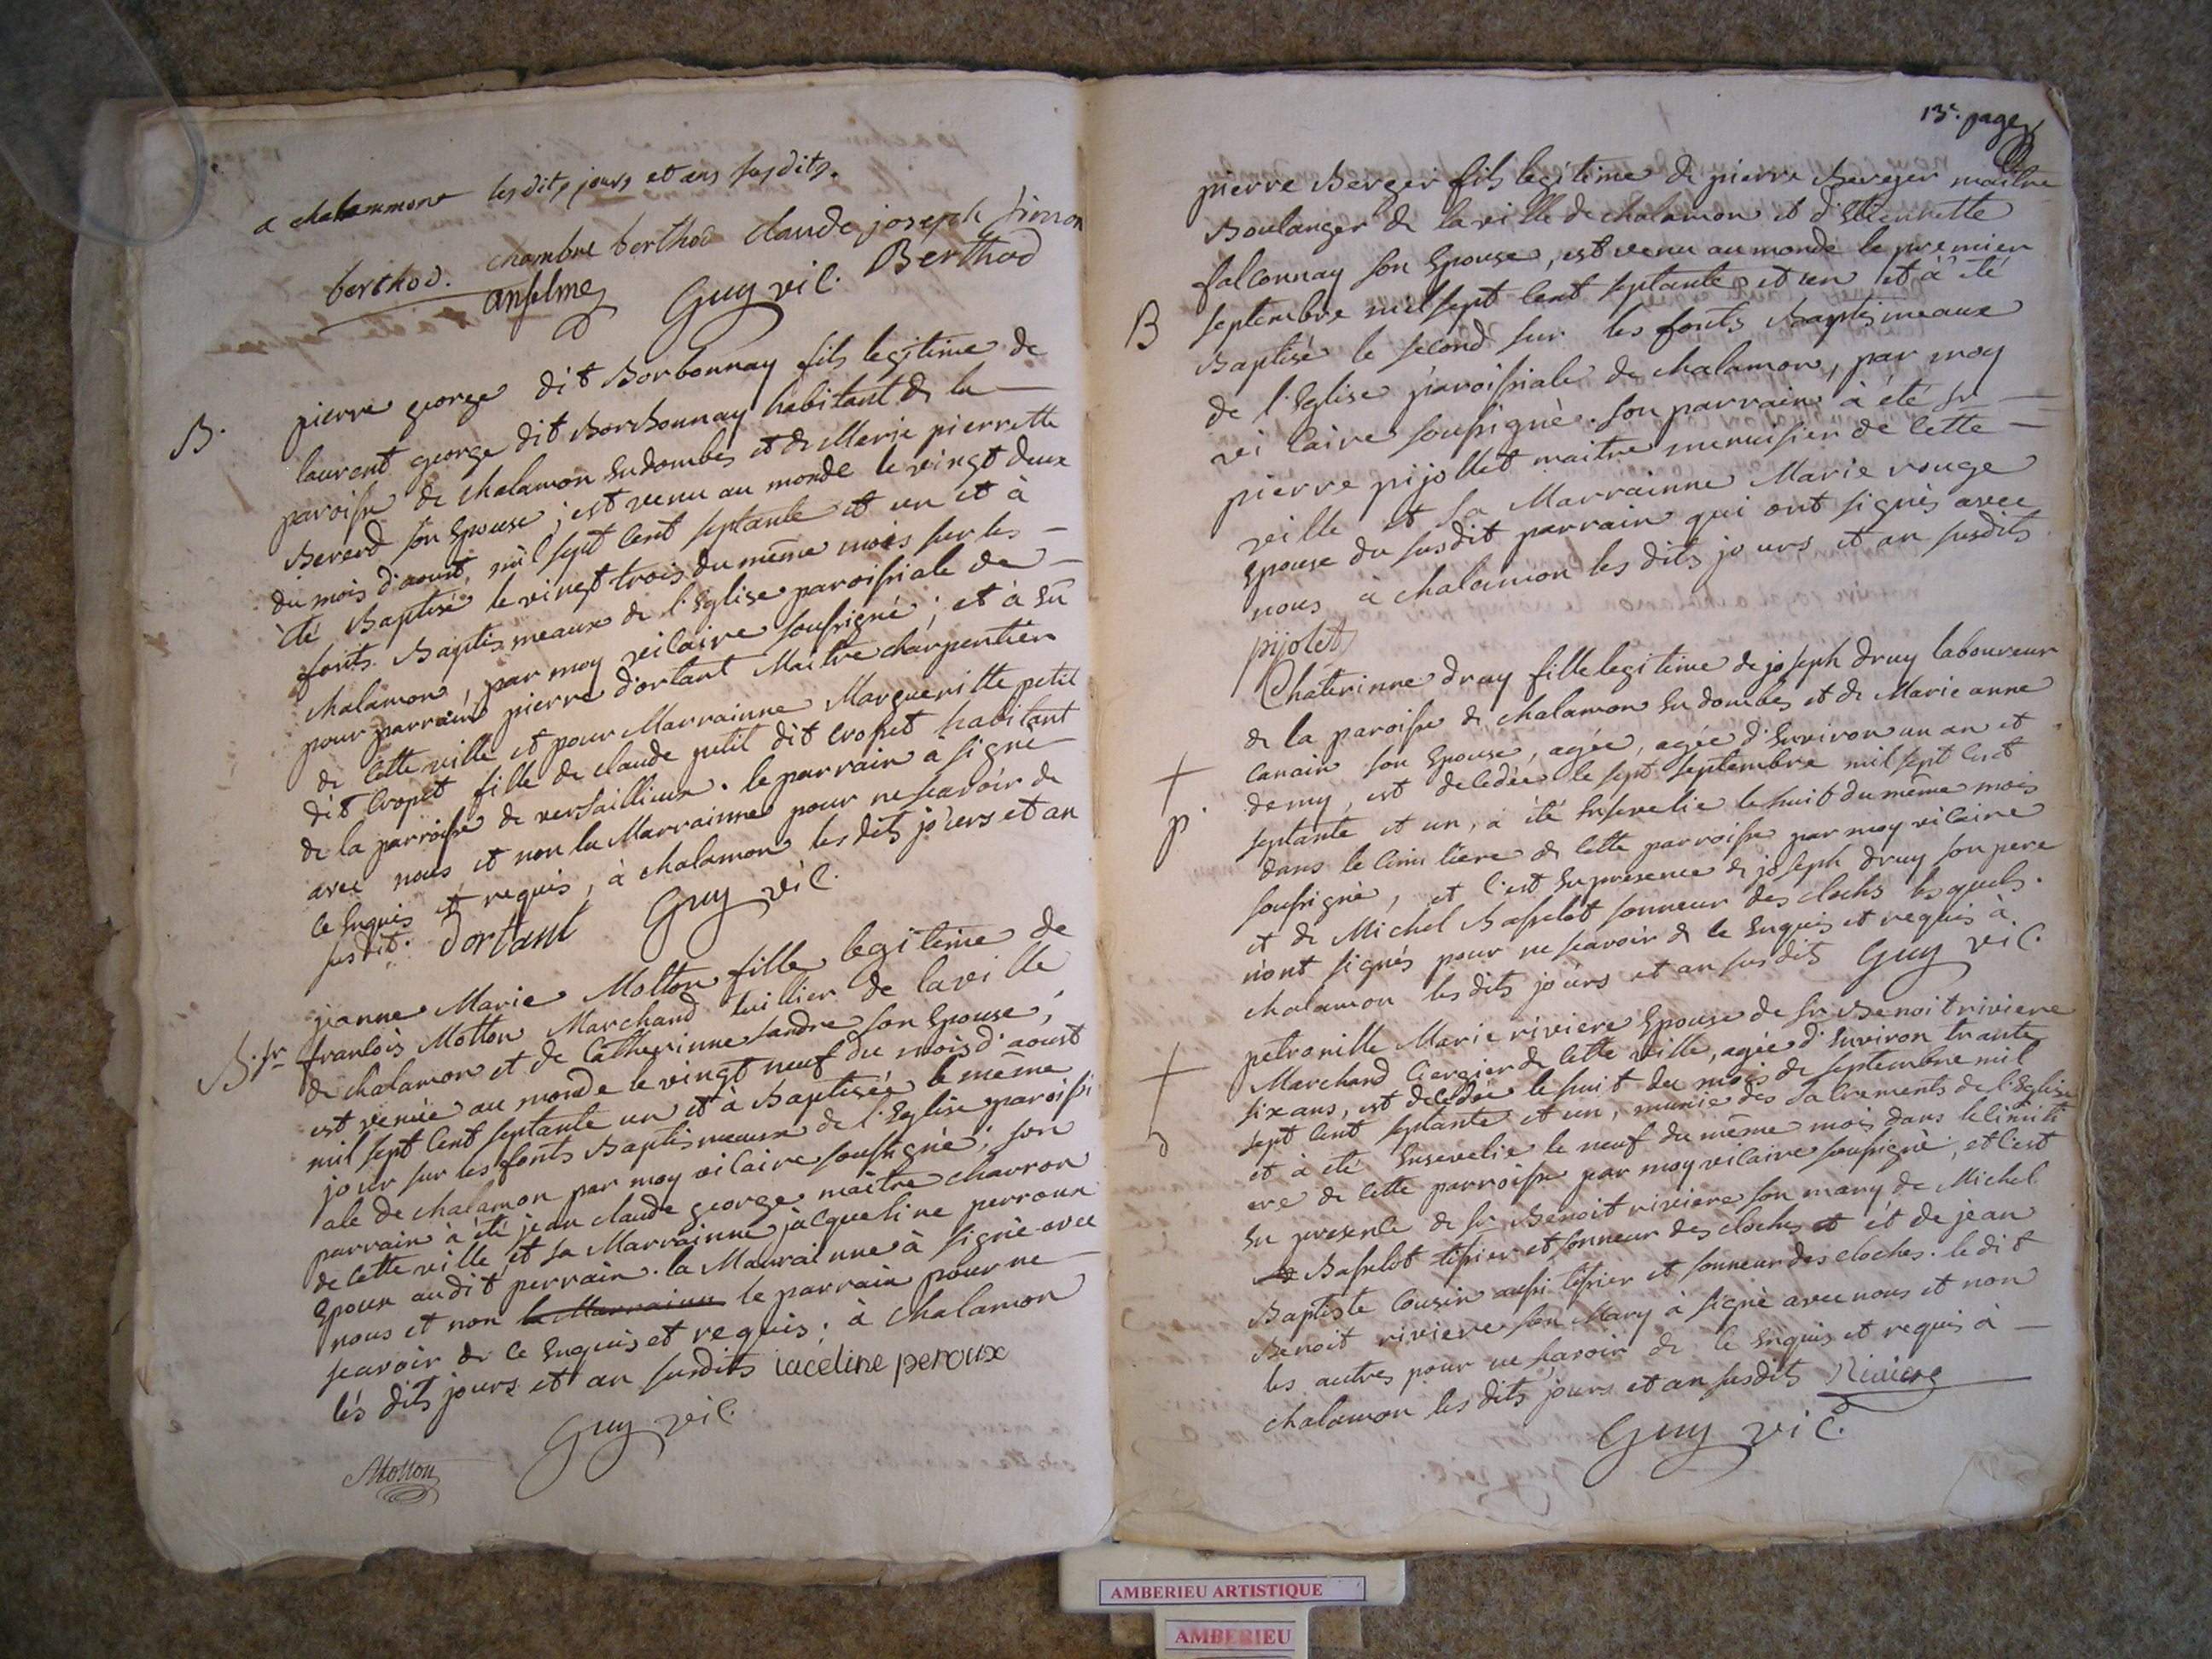 a chalammont lesdits jours et ans susdits.
berthod. chambre berthod claude joseph simon
anselme Guy vic. Berthod
B. pierre george dit Borbonnay fils legitime de
laurent george dit Borbonnay habitant de la
paroisse de chalamon en dombes et de Marie pierrette
Bererd son epouse; est venu au monde le vingt deux
du mois d'aoust, mil sept cent septante et un et à
été Baptisé le vingt trois du même mois sur les
fonts Baptismeaux de l'Eglise paroissiale de
chalamon, par moy vicaire soussigné; et à eu
pour parrain pierre dortant Maitre charpentier
de cette ville et pour Marrainne Margueritte petit
dit cropet fille de claude petit dit cropet habitant
de la parroisse de versaillieux. le parrain a signé
avec nous et non la Marrainne pour ne scavoir de
ce enquis et requis, à chalamon les dits jours et an
susdit. Dortant Guy vic.
jeanne Marie Motton fille legitime de
B. fr francois Motton Marchand tuillier de la ville
de chalamon et de Catherinne sandre son epouse,
est venüe au monde le vingt neuf du mois d'aoust
mil sept cent septante un et à Baptisée le même
jour sur les fonts Baptismeaux de l'Eglise paroissi
ale de chalamon par moy vicaire soussigné; son
parrain à été jean claude george maitre charron
de cette ville et sa Marrainne jacqueline perroux
epoux audit perrain. la Marrainne à signé avec
nous et non la Marrainne le parrain pour ne
scavoir de ce enquis et requis; à chalamon
lés dits jours et an susdits iaceline peroux
Guy vic.
Motton
13e. page
pierre Berger fils legitime de pierre Bereger maitre
Boulanger de la ville de chalamon et d'Etiennette
falconnay son Epouse, est venu au monde le premier
B septembre mil sept cent septante et un et à été
Baptisé le second sur les fonts Baptismeaux
de l'Eglise paroissiale de chalamon, par moy
vicaire soussigné. son parrain à été sr
pierre pijollet maitre menuisier de cette
ville et sa Marrainne Marie rouge
Epouse du susdit parrain qui ont signés avec
nous à chalamon les dits jours et an susdits
pijolet
Chaterinne druy fille legitime de joseph druy laboureur
de la paroisse de chalamon en dombes et de Marie anne
canain son Epouse, agée, agée d'Environ un an et
demy, est decedée le sept septembre mil sept cent
p. septante et un, à été Ensevelie le huit du même mois
dans le cimetiere de cette parroisse par moy vicaire
soussigné, et c'est en presence de joseph druy son pere
et de Michel Basselot sonneur des clochs lesquels
n'ont signés pour ne scavoir de ce enquis et requis à
chalamon les dits jours et an susdits Guy vic.
petronille Marie riviere Epouse de sr Benoit riviere
Marchand ciergier de cette ville, agée d'Environ trante
six ans, est decedée le huit du mois de septembre mil
sept cent septante et un, munie des sacrements de l'Eglise
et à été Ensevelie le neuf du même mois dans le cimiti
ere de cette parroisse par moy vicaire soussigné, et c'est
en presence de sr Benoit riviere son mary de Michel
Basselot tissier et sonneur des cloches et et de jean
Baptiste Cousin aussi tissier et sonneur des cloches. le dit
Benoit riviere son Mary à signé avec nous et non
les autres pour ne scavoir de ce enquis et requis à
chalamon les dits jours et an susdits Riviere
Guy vic.
AMBERIEU ARTISTIQUE
AMBERIEU